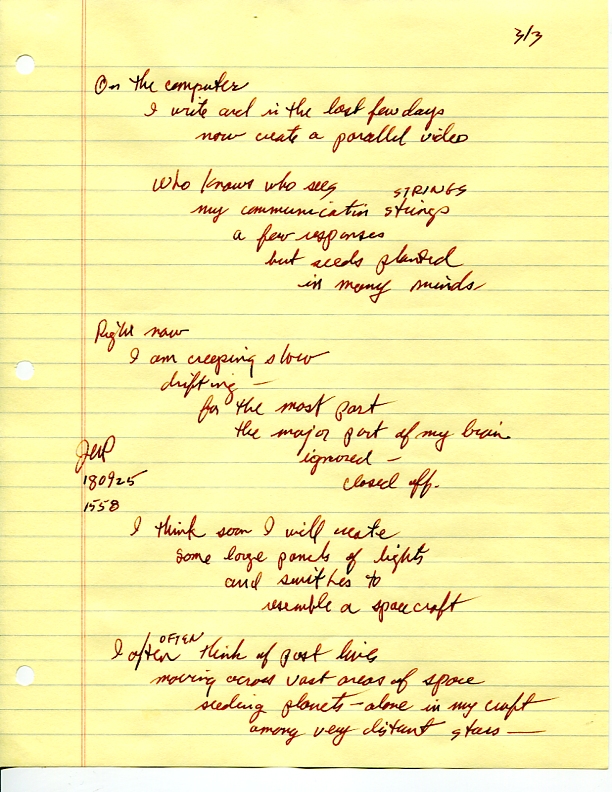 3/3
On the computer
I write and in the last few days
now create a parallel video
Who knows who sees STRINGS
my communication strings
a few responses
but seeds planted
in many minds
Right now
I am creeping slow
drifting —
for the most part
the major part of my brain
ignored —
closed off.
180925
1558
I think soon I will create
some large panels of lights
and switches to
resemble a spacecraft
OFTEN
I often think of past lives
moving across vast areas of space
seeding planets – alone in my craft
among very distant stars —